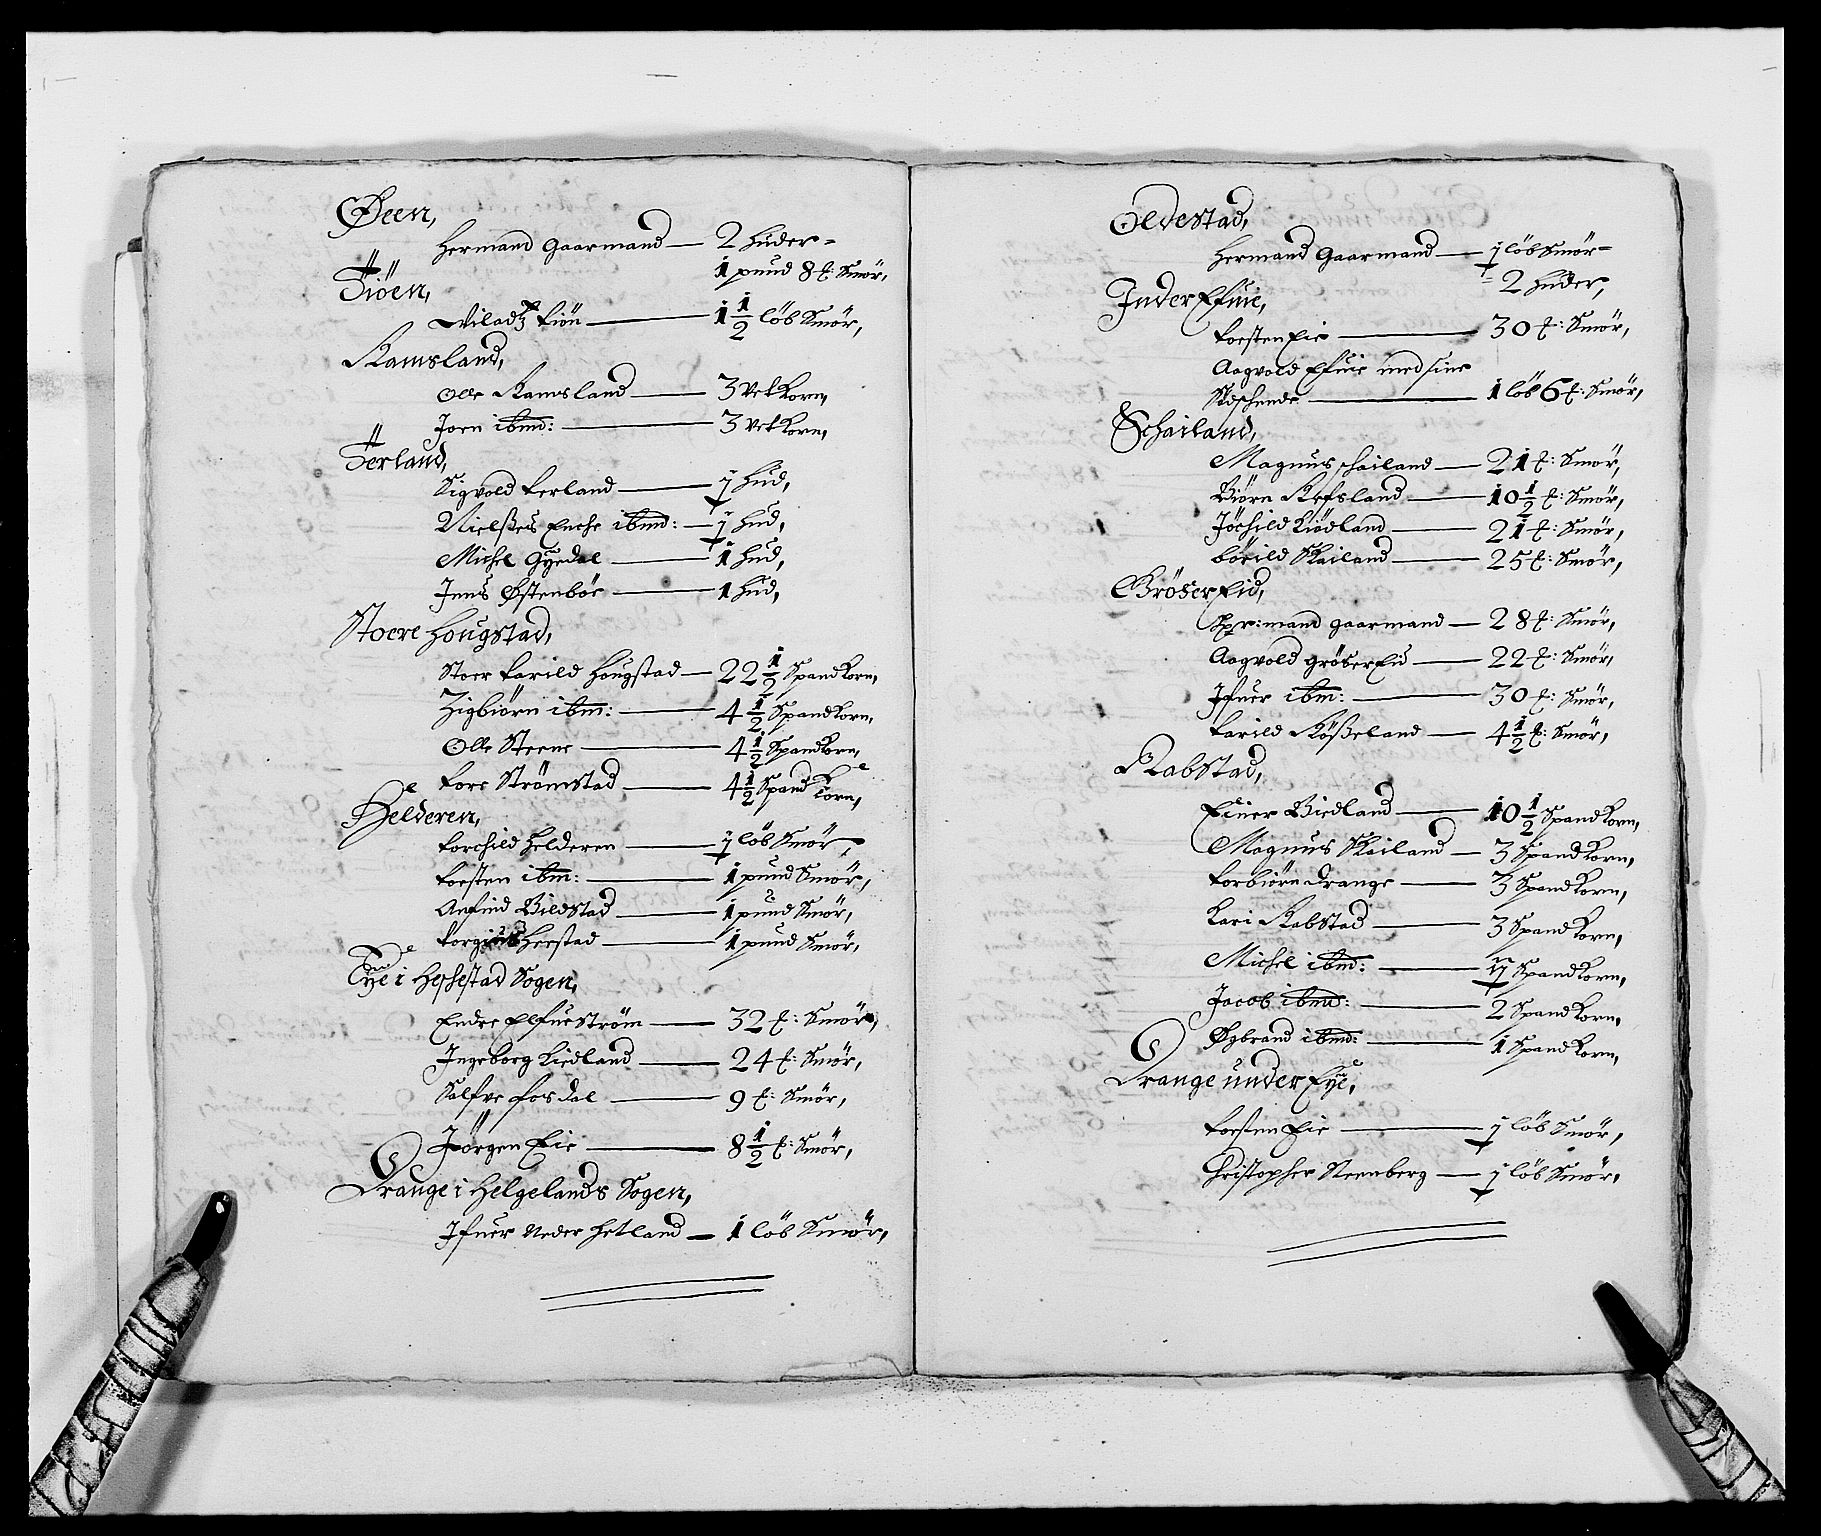 Øeen,
Hermand Gaarmand — 2 Huder=
1 pund 8 t: Smör,
Tiöen,
Villadtz Tiön — 1 1/2 löb Smör,
Ramsland,
Olle Ramsland — 3 Vet Korn,
Joen ibmd: — 3 Vet Korn,
Terland,
Sigvold Terland — 1/2 Hud,
Nielßes Enche ibmd: — 1/2 Hud,
Michel Gyedal — 1 Hud,
Jens Østenbör — 1 Hud,
Stoere Hougstad,
Stoer Tarild Hougstad — 22 1/2 Spand Korn,
Zigbiörn ibm: — 4 1/2 Spand Korn,
Olle Steene — 4 1/2 Spand Korn,
Tore Strömstad — 4 1/2 Spand Korn,
Helderen,
Torchild Helderen — 1/2 löb Smör,
Torsten ibm: — 1 pund Smör,
Anfind Bildstad — 1 pund Smör,
Torgius Herstad — 1 pund Smör,
Eye i Heshestad Sogen,
Endre Elfueström — 32 t: Smör,
Ingeborg Liedland — 24 t: Smör,
Salfve Fosdal — 9 t: Smör,
Jörgen Eie — 8 1/2 t: Smör,
Drange i Helgelands Sogen,
Ifuer Neder Hetland — 1 löb Smör,
Oldestad,
Hermand Gaarmand — 1/2 löb Smör=
= 2 Huder,
Inder Efuie,
Torsten Eie — 30 t: Smör,
Aagvold Efuie med sine
Södschende — 1 löb 6 t: Smör,
Schailand,
Magnus schailand — 21 t: Smör,
Biörn Refsland — 10 1/2 t: Smör,
Jöchild Kiödland — 21 t: Smör,
börild Skailand — 25 t: Smör,
Gröser Eid,
Hpr:mand gaarmand — 28 t: Smör,
Aagvold gröser Eid — 22 t: Smör,
Ifuer ibm: — 30 t: Smör,
Tarild Rößeland — 4 1/2 t: Smör,
Rabstad,
Einer Birdland — 10 1/2 Spand Korn,
Magnus Skailand — 3 Spand Korn,
Torbiörn Drange — 3 Spand Korn,
Kari Rabstad — 3 Spand Korn,
Michel ibmd: — Spand Korn,
Jacob ibmd: — 2 Spand Korn,
Øgbrand ibmd: — 1 Spand Korn,
Drange under Eye,
Torsten Eie — 1/2 löb Smör,
Christopher Steenberg — 1/2 löb Smör,